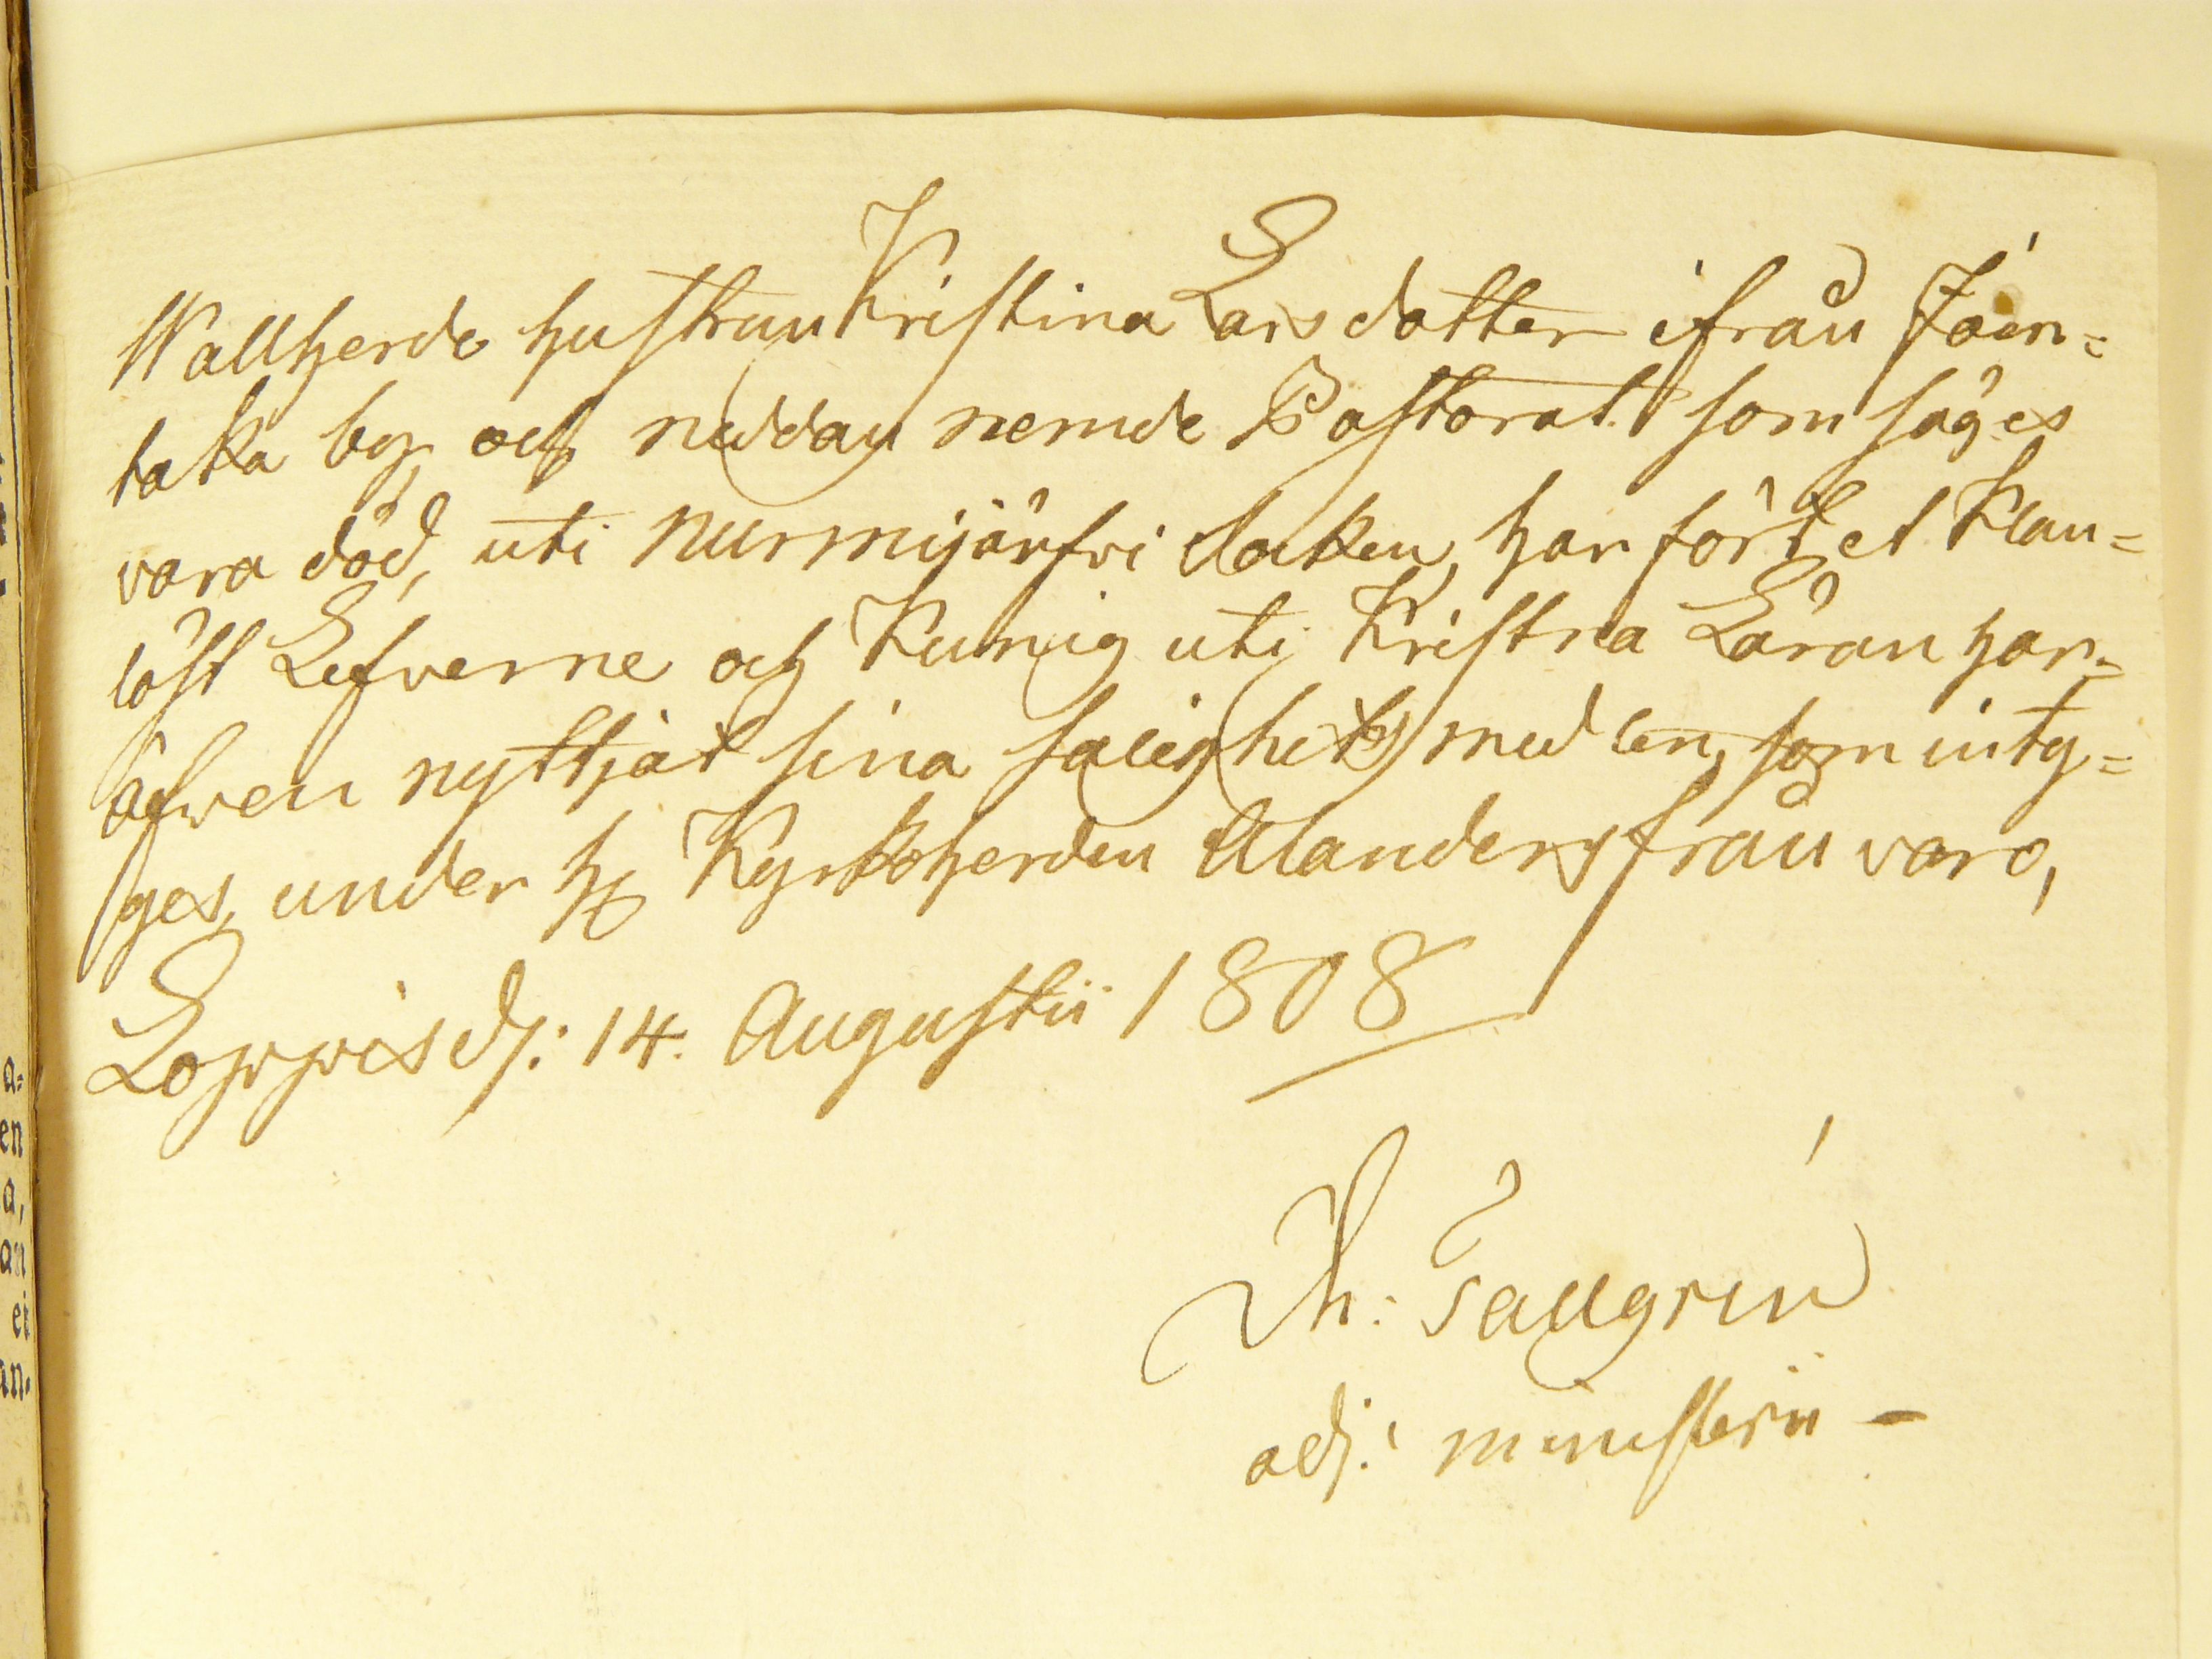 Wallherde hustrun Kristina Larsdotter ifrån Joen=
taka by och neddan nemde Pastorat som säges
vara död, uti Nurmijärfvi Socken, har fördt et Klan=
löst Lefverne och Kunig uti Kristna Läran har
äfven nyttjat sina salighets medlen, som inty=
ges, under H Kyrkoherden Ulanders från varo,
Loppis d: 14. Augustii 1808
Th: Tallgren
adj: ministerii -
a=
en
a,
an
ei
an=